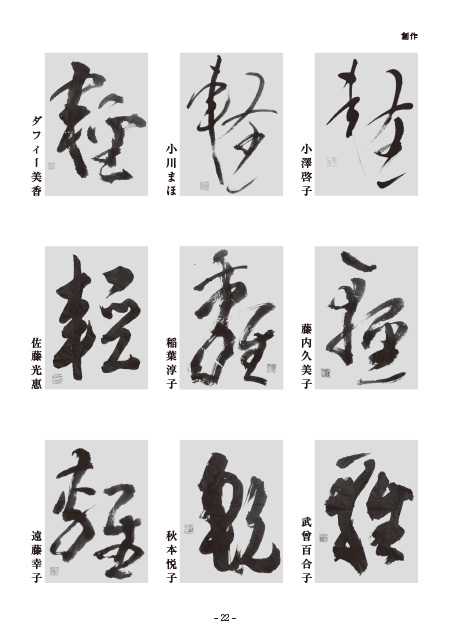 創作
軽
小澤啓子
軽
小川まほ
輕
ダフィー美香
藤内久美子
稲葉淳子
輕
佐藤光惠
武曾百合子
秋本悦子
輕
遠藤幸子
- 22 -